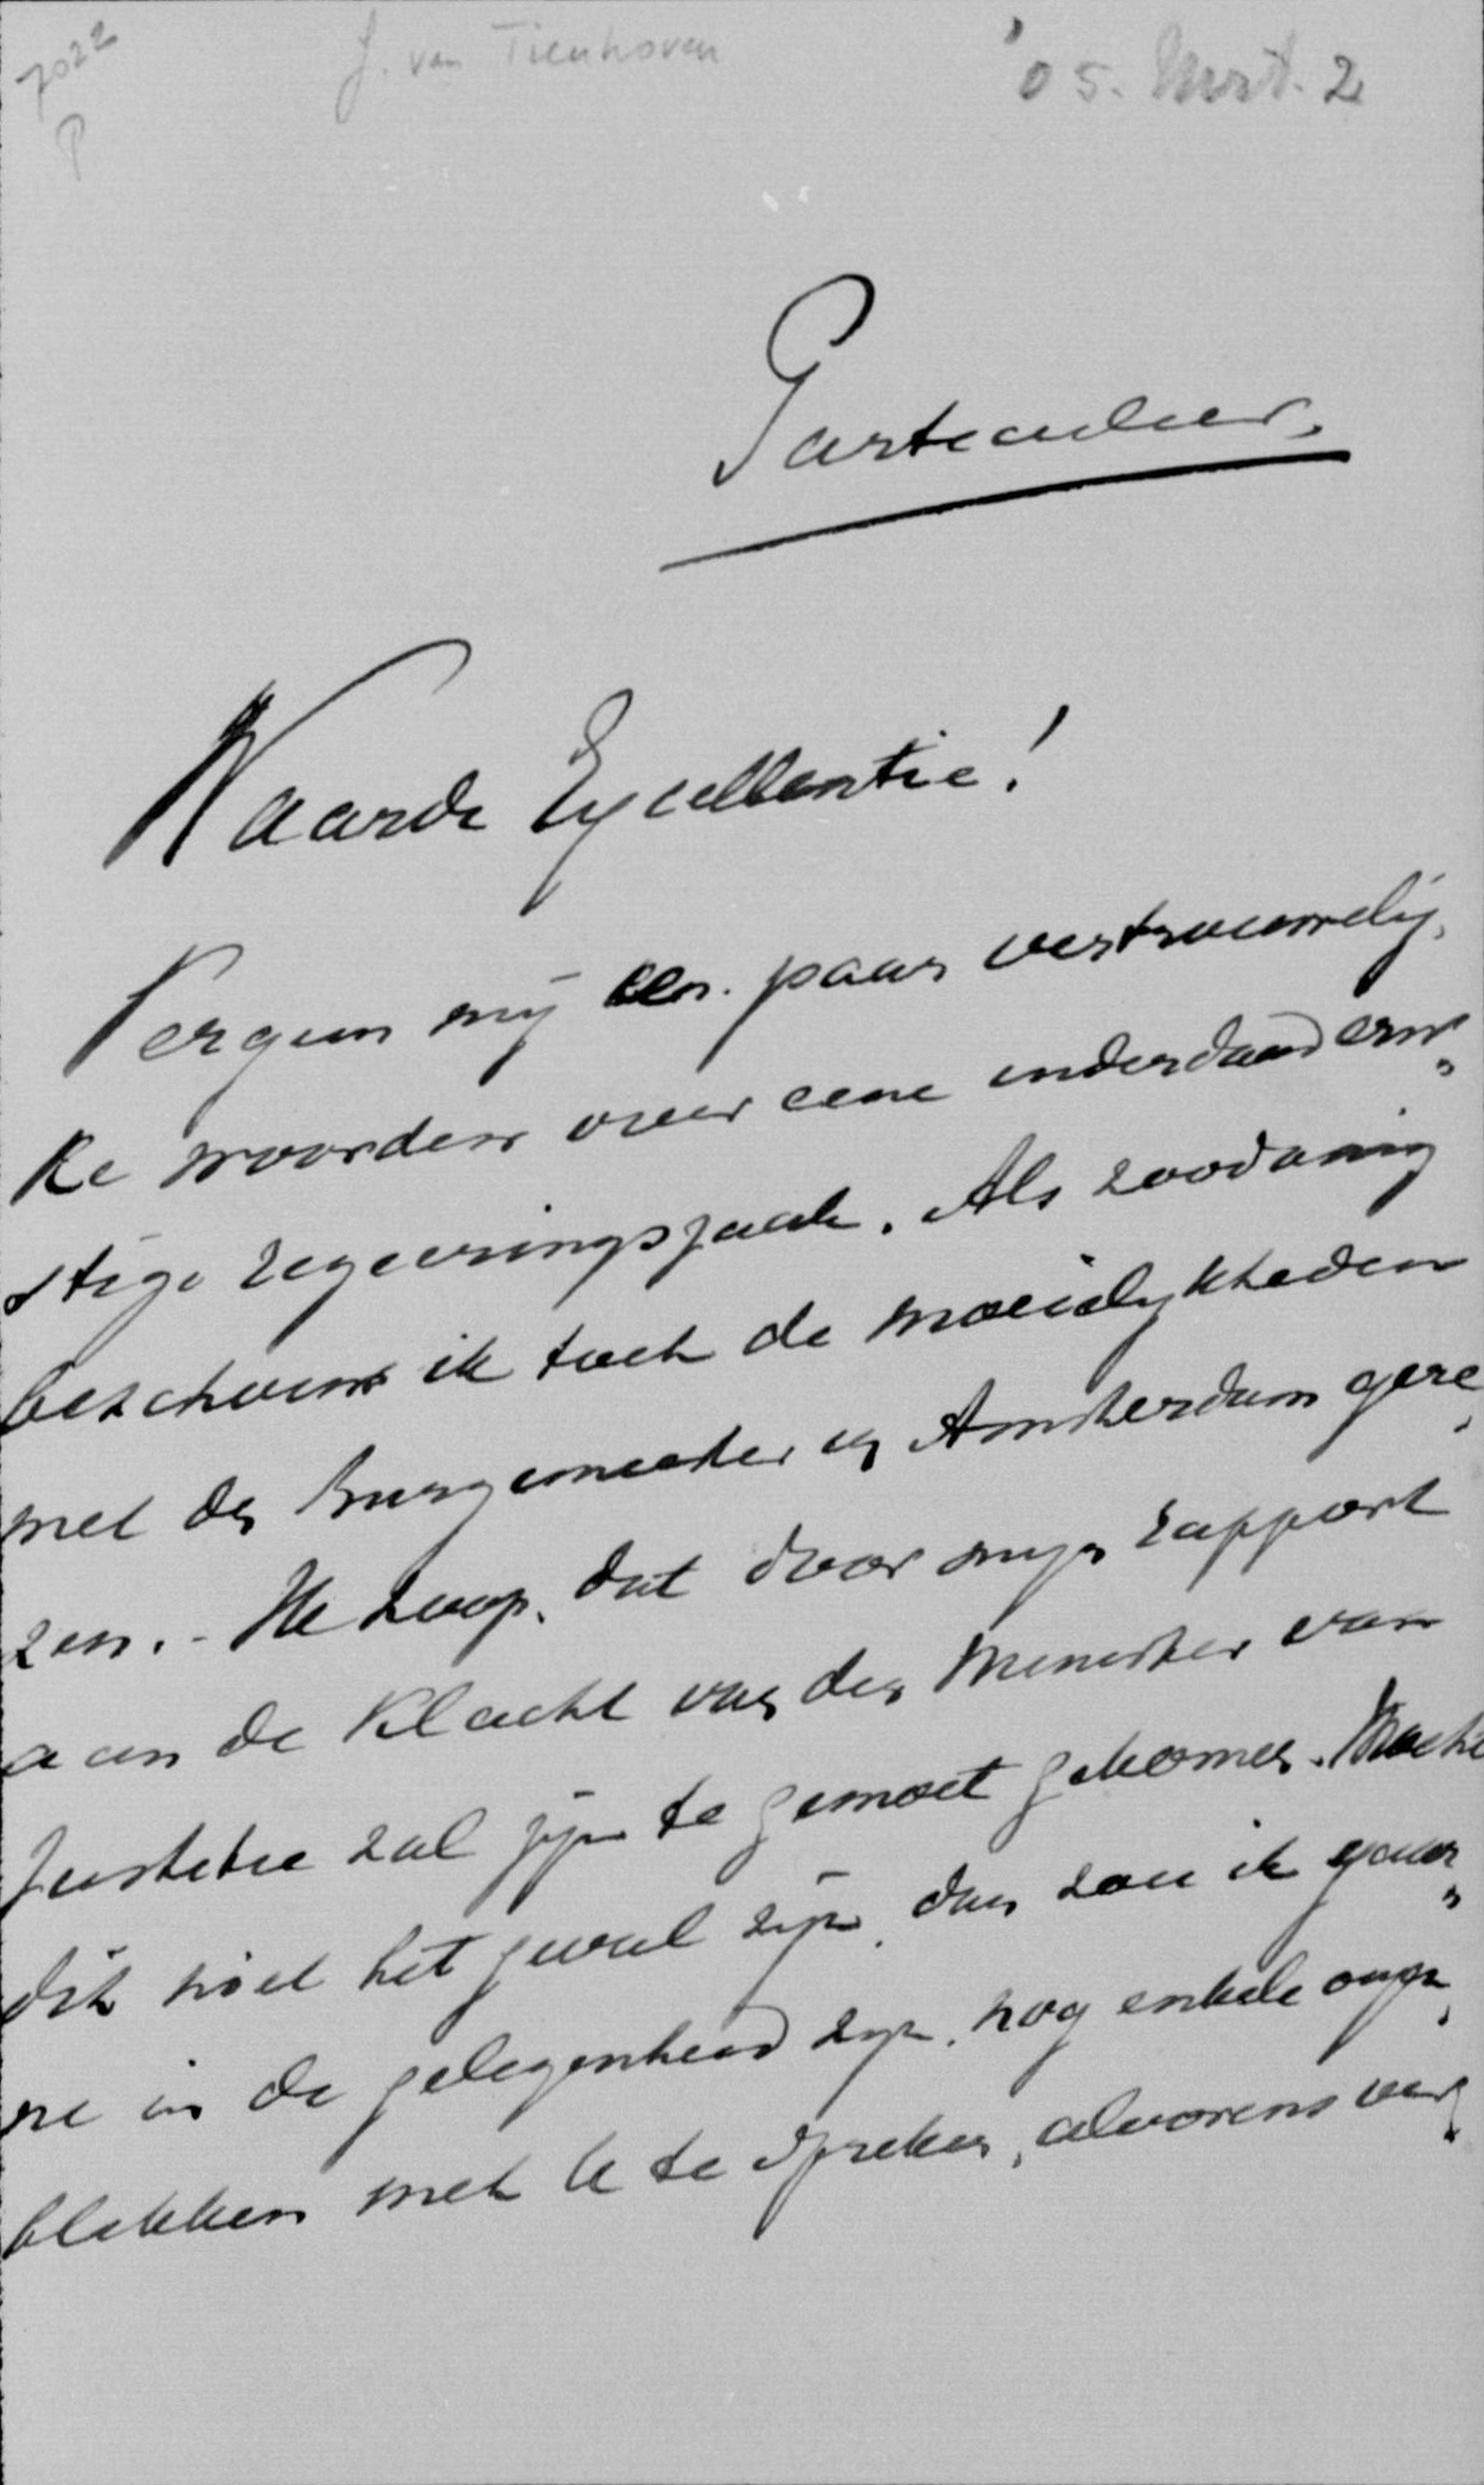 7022
P
J. van Tienhoven
'05. Mrt. 2
Particulier.
Waarde Excellentie!
Vergun mij een paar vertrouwelij,
ke woorden over eene inderdaad ern„
stige regeeringszaak. Als zoodanig
beschouw ik toch de moeielykheden
met den burgemeester van Amsterdam gere,
zen. - Ik hoop, dat door myn rapport
aan de klacht van den Minister van
Justitie zal zijn te gemoet gekomen. Mocht
dit niet het geval zijn, dan zou ik gaar„
ne in de gelegenheid zyn, nog enkele oogen,
blikken met U te spreken, alvorens ver,